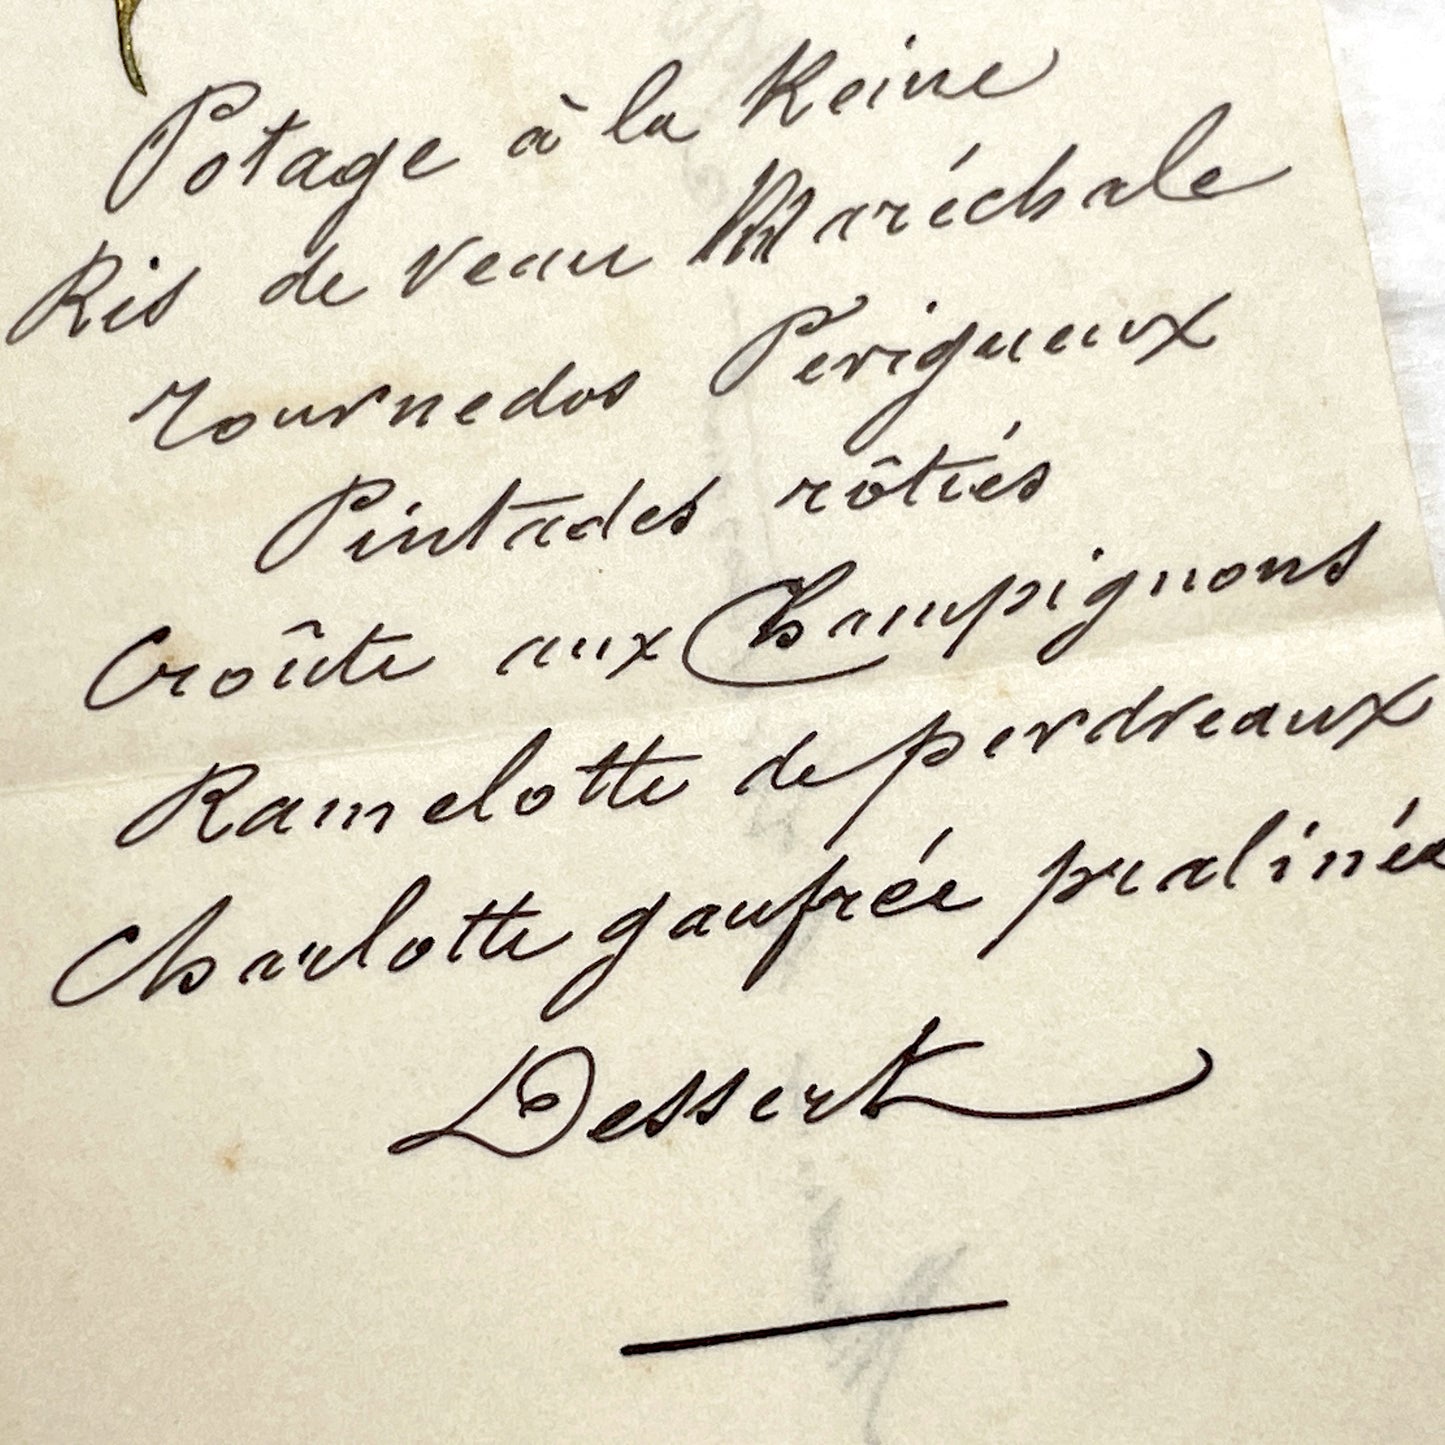 Potage à la Reine
Ris de veau Maréchale
Tournedos Perigueux
Pintades rôtiés
Croûte aux Champignons
Ramelotte de perdreaux
Charlotte gaufrée pralinée
Dessert